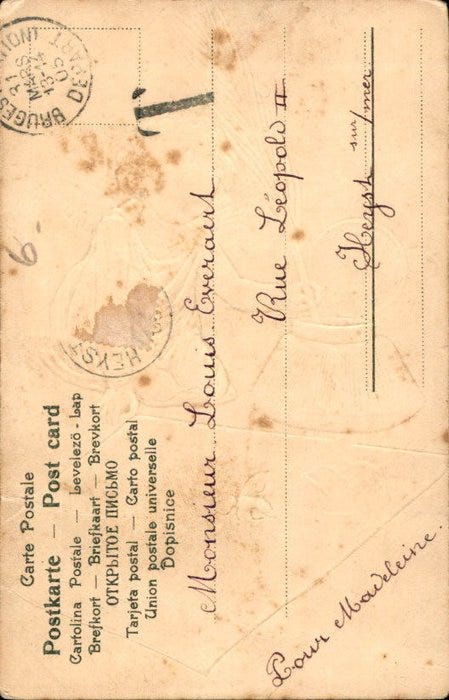 Carte Postale
Postkarte — Post card
Cartolina Postale — Levelező-Lap
Brefkort — Briefkaart — Brevkort
ОТКРЫТОЕ ПИСЬМО
Tarjeta postal — Carto postal
Union postale universelle
Dopisnice
BRUGES
DEPART
21
MARS
13-14
05
T
6.
HEYST
Monsieur Louis Everaert
Rue Léopold II
Heyst sur/mer
Pour Madeleine.